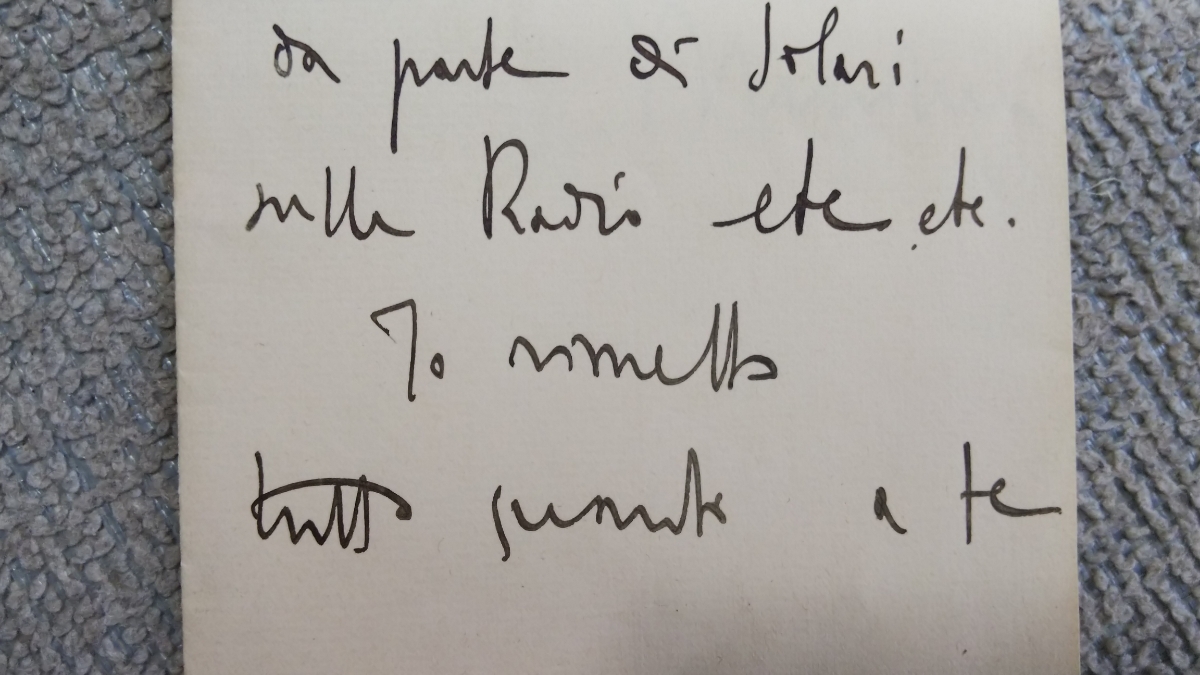 da parte di Solari
sulla Radio etc etc.
Io rimetto
tutto quanto a te